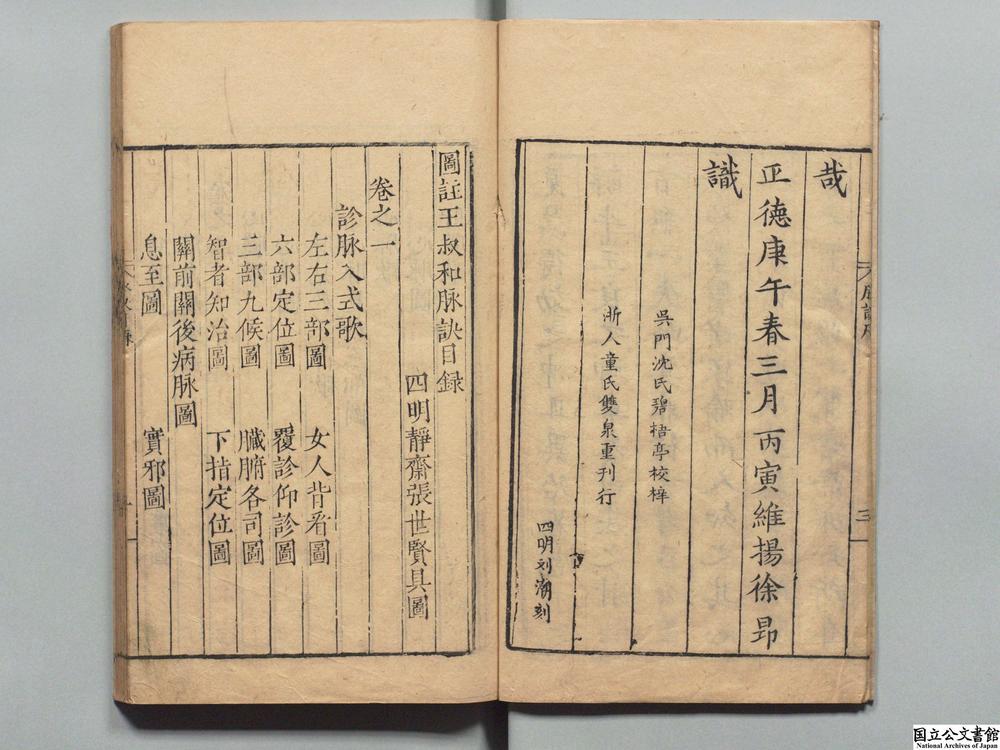 哉
正德庚午春三月丙寅維揚徐昂
識
吳門沈氏碧梧亭校梓
浙人童氏雙泉重刊行
四明刘潮刻
圖註王叔和脉訣目録
四明靜齋張世賢具圖
卷之一
診脉入式歌
左右三部圖 女人背看圖
六部定位圖 覆診仰診圖
三部九候圖 臟腑各司圖
智者知治圖 下指定位圖
關前關後病脉圖
息至圖 實邪圖
三
国立公文書館
National Archives of Japan